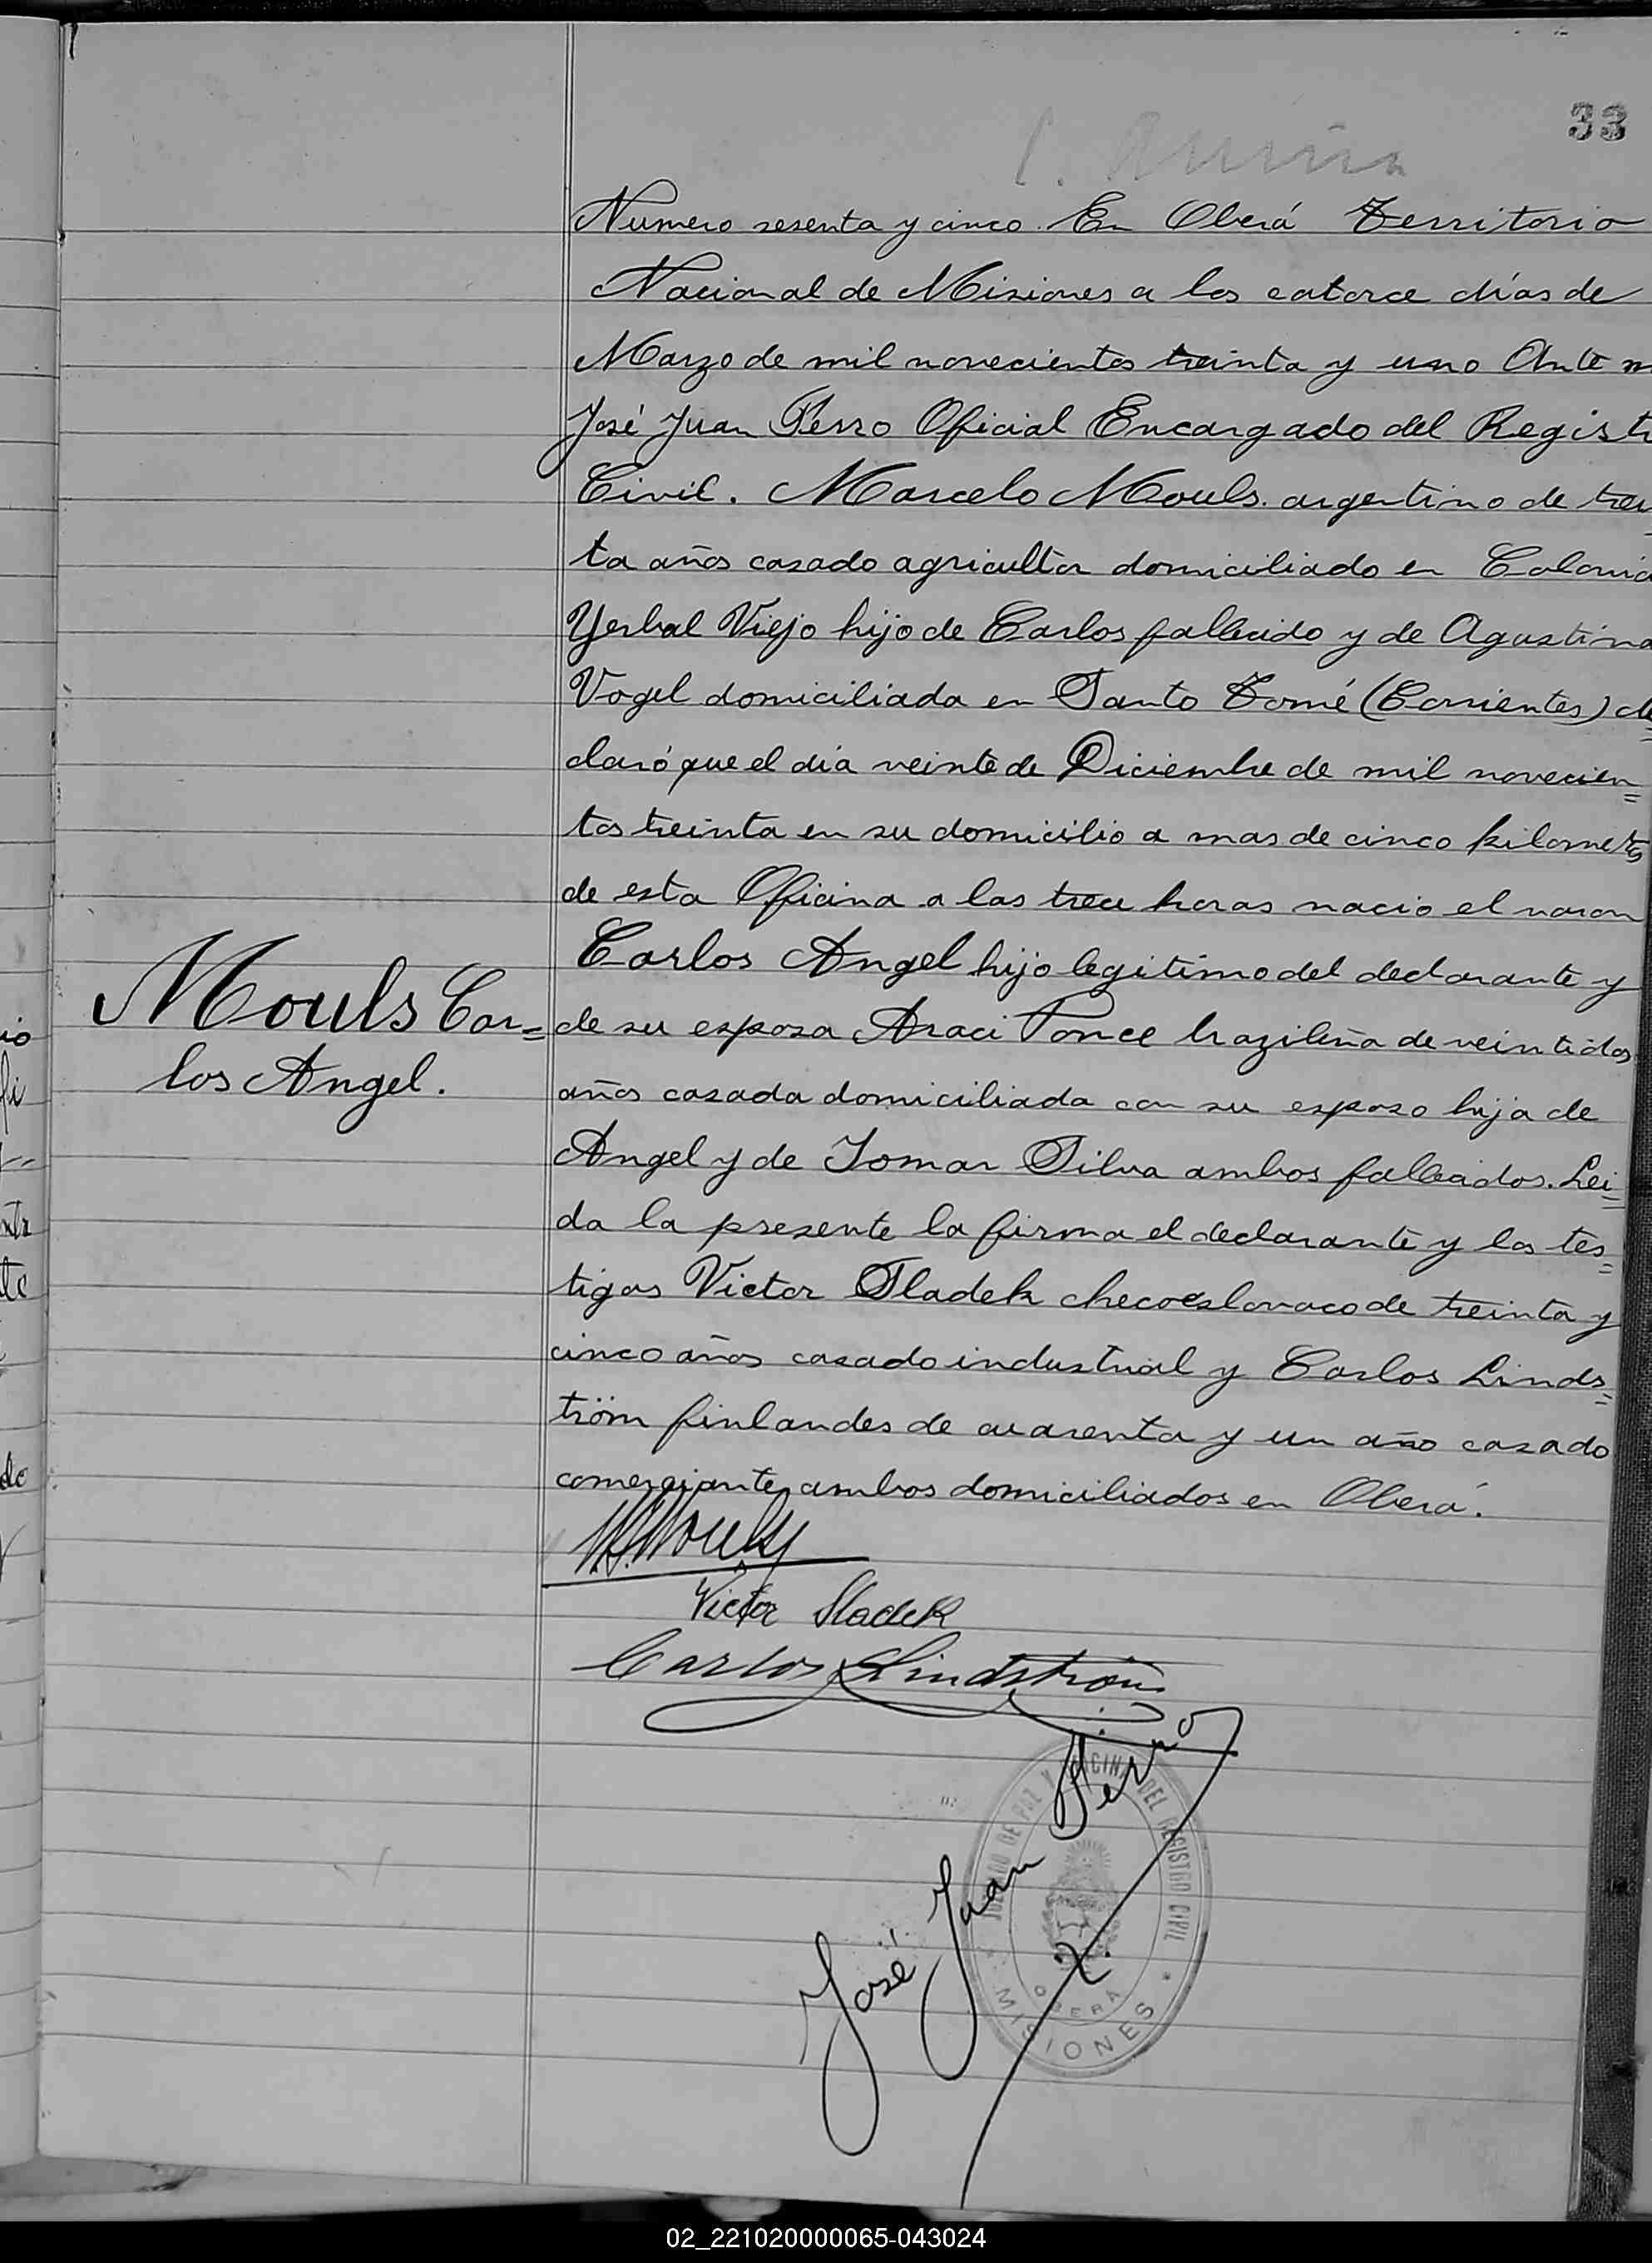 33
Numero sesenta y cinco. En Oberá Territorio
Nacional de Misiones a los catorce días de
Marzo de mil novecientos treinta y uno Ante m
José Juan Ferro Oficial Encargado del Registr
Civil. Marcelo Mouls. argentino de trein
ta años casado agricultor domiciliado en Colonia
Yerbal Viejo hijo de Carlos fallecido y de Agustina
Vogel domiciliada en Santo Tomé (Corrientes) de=
claró que el día veinte de Diciembre de mil novecien=
tos treinta en su domicilio a mas de cinco kilometros
de esta Oficina a las trece horas nacio el varon
Carlos Angel hijo legitimo del declarante y
Mouls Car=
los Angel.
de su esposa Araci Ponce brazileña de veintidos
años casada domiciliada con su esposo hija de
Angel y de Iomar Silva ambos fallecidos. Lei=
da la presente la firma el declarante y los tes=
tigos Victor Sladek checoeslovaco de treinta y
cinco años casado industrial y Carlos Linds=
tröm finlandes de cuarenta y un año casado
comerciante ambos domiciliados en Oberá.
M. Mouls
Victor Sladek
Carlos Lindström
José Juan Ferro
JUZGADO DE PAZ Y OFICINA DEL REGISTRO CIVIL
OBERA
MISIONES
02_221020000065-043024